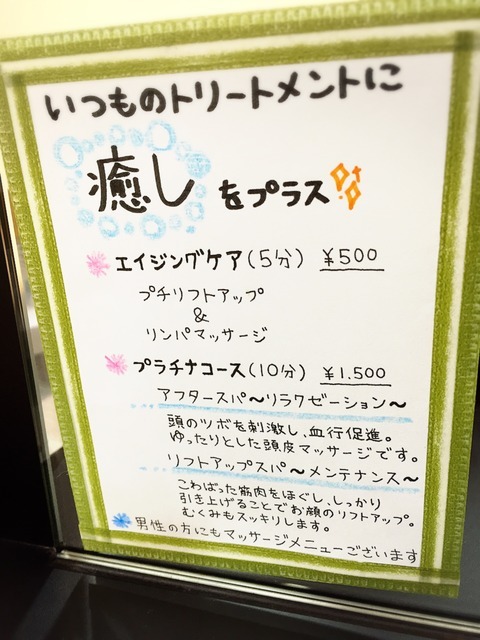 いつものトリートメントに
癒しをプラス
エイジングケア(5分) ¥500
プチリフトアップ
&
リンパマッサージ
プラチナコース(10分) ¥1.500
アフタースパ〜リラクゼーション〜
頭のツボを刺激し、血行促進。
ゆったりとした頭皮マッサージです。
リフトアップスパ〜メンテナンス〜
こわばった筋肉をほぐし、しっかり
引き上げることでお顔のリフトアップ。
むくみもスッキリします。
男性の方にもマッサージメニューございます